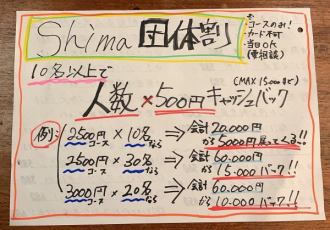 Shima 団体割
・コースのみ!
・カード不可
・当日OK
(要相談)
10名以上で
人数×500円キャッシュバック
(MAX 15.000まで)
例:
2500円コース × 10名なら ⇒ 会計 20.000円から 5000円戻ってくる!!
2500円コース × 30名なら ⇒ 会計 60.000円から 15.000バック!!
3000円コース × 20名なら ⇒ 会計 60.000円から 10.000バック!!